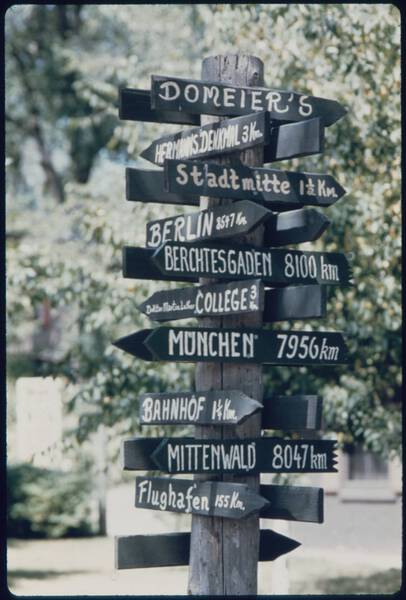 DOMEIER'S
HERMANN'S DENKMAL 3 Km.
Stadtmitte 1½ Km.
BERLIN 8597 Km.
BERCHTESGADEN 8100 km
Doktor Martin Luther COLLEGE ¾ Km.
MÜNCHEN 7956 km
BAHNHOF 1¼ Km.
MITTENWALD 8047 km
Flughafen 155 Km.